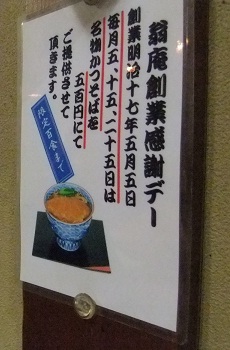 翁庵創業感謝デー
創業明治十七年五月五日
毎月五、十五、二十五日は
名物かつそばを
五百円にて
ご提供させて
頂きます。
限定百食まで